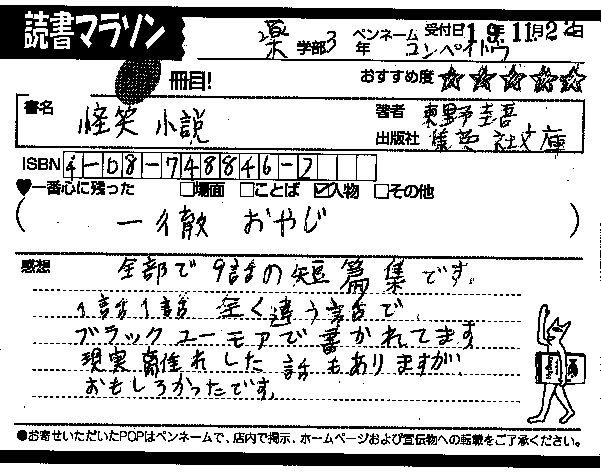 読書マラソン
薬 学部 3 年 ペンネーム コンペイトウ 受付日 19年11月22日
冊目!
おすすめ度 ☆☆☆☆☆
書名 怪笑小説
著者 東野圭吾
出版社 集英社文庫
ISBN 4-08-748846-2
♥一番心に残った □場面 □ことば ☑人物 □その他
( 一徹おやじ )
感想 全部で9話の短篇集です。
1話1話全く違う話で、
ブラックユーモアで書かれてます
現実離れした話もありますが、
おもしろかったです。
●お寄せいただいたPOPはペンネームで、店内で掲示、ホームページおよび宣伝物への転載をご了承ください。